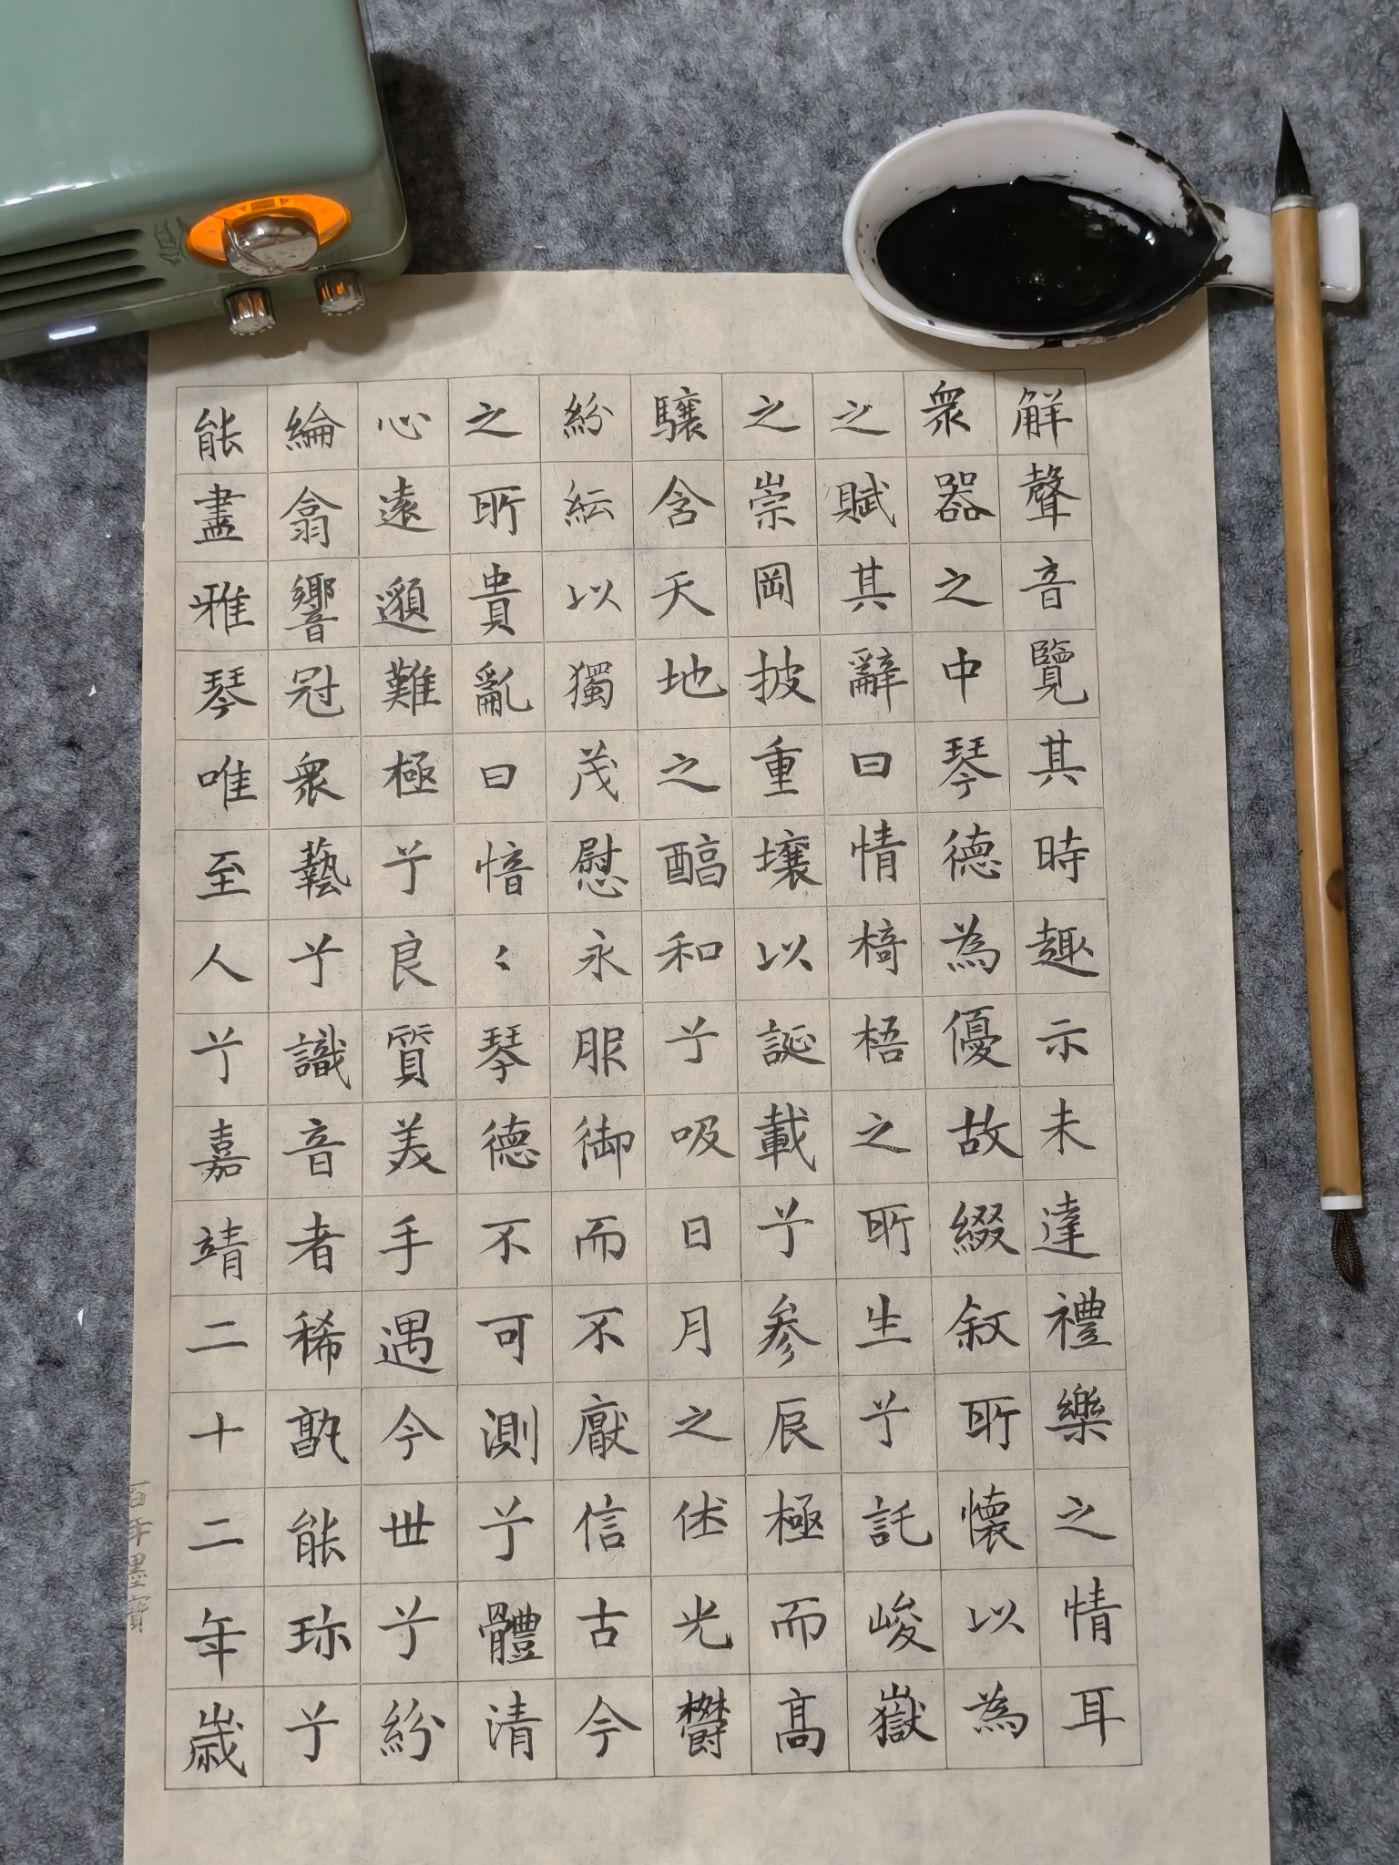 解聲音覽其時趣示未達禮樂之情耳
衆器之中琴德為優故綴敘所懷以為
之賦其辭曰情椅梧之所生兮託峻嶽
之崇岡披重壤以誕載兮参辰極而高
驤含天地之醇和兮吸日月之休光鬱
紛紜以獨茂慰永服御而不厭信古今
之所貴亂曰愔〻琴德不可測兮體清
心遠邈難極兮良質美手遇今世兮紛
綸翕響冠衆藝兮識音者稀孰能珎兮
能盡雅琴唯至人兮嘉靖二十二年歲
百年墨寶